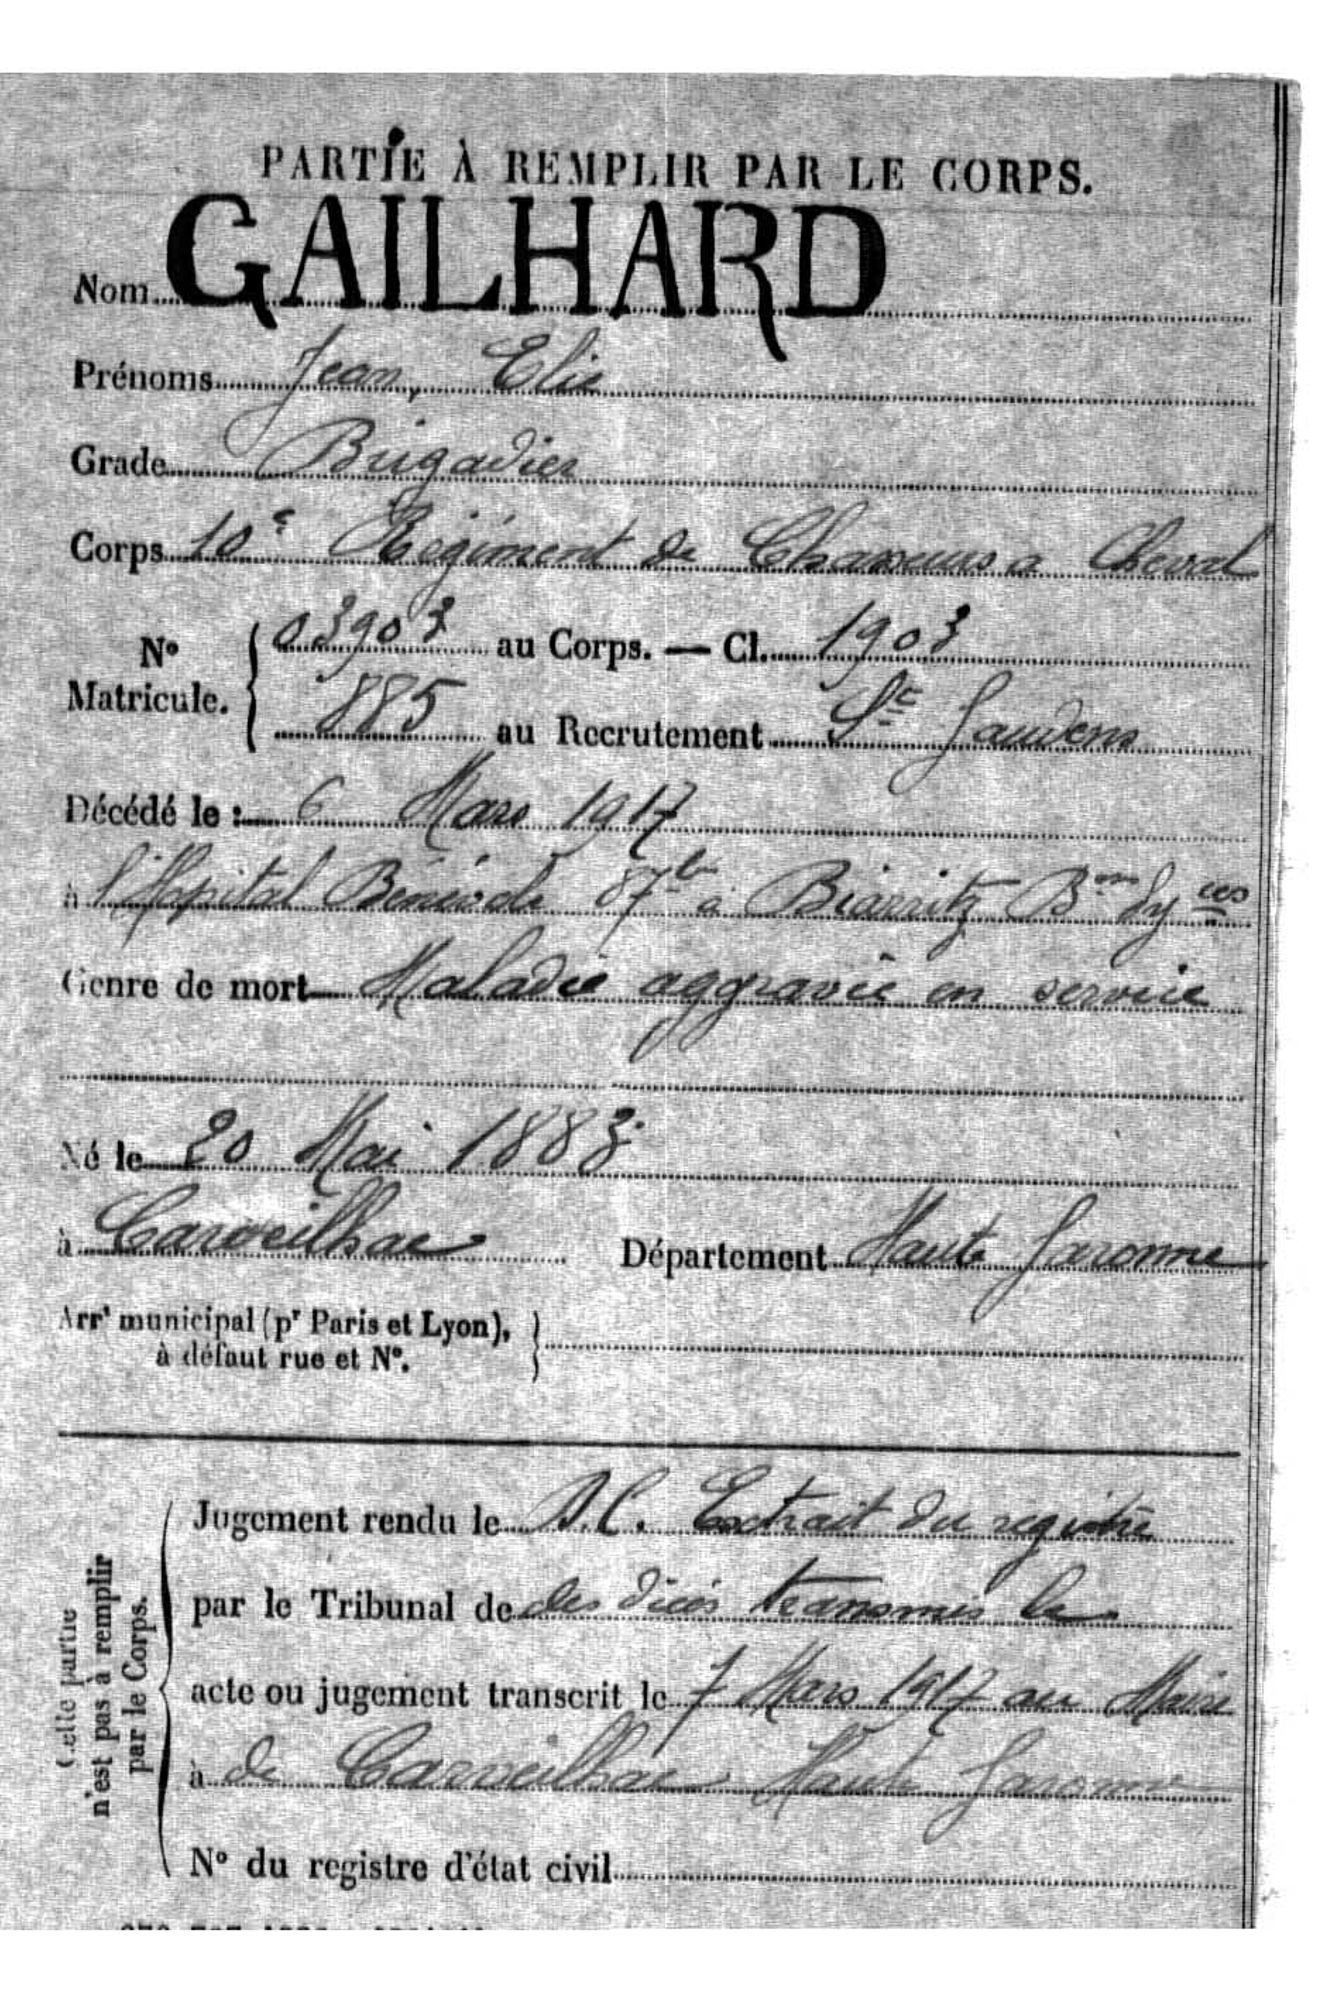 PARTIE À REMPLIR PAR LE CORPS.
Nom GAILHARD
Prénoms Jean, Elie
Grade Brigadier
Corps 10e Régiment de Chasseurs a Cheval
No Matricule. { 03903 au Corps. — Cl. 1903
885 au Recrutement St Gaudens
Décédé le : 6 Mars 1917
à l'Hopital Bénévole 87 bis a Biarritz Bses Pyrées
Genre de mort Maladie aggravée en service
Né le 20 Mai 1883
à Carveilhac Département Haute Garonne
Arrt municipal (pr Paris et Lyon), }
à défaut rue et No.
Cette partie n'est pas à remplir par le Corps.
Jugement rendu le Extrait du registre
par le Tribunal de des décès transmis le
acte ou jugement transcrit le 7 Mars 1917 au Maire
à de Carveilhac Haute Garonne
No du registre d'état civil